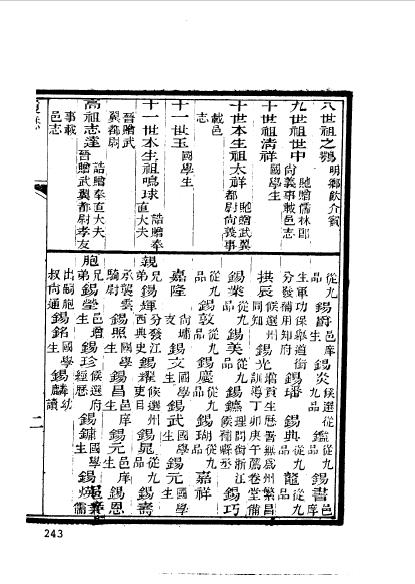 八世祖之 明鄉飲介賓
九世祖世中 貤贈儒林郎尚義事載邑志
十世祖清祥 國學生
十世本生祖太祥 貤贈武翼都尉尚義事載邑志
十一世玉 國學生
十一世本生祖鳴球 誥贈奉直大夫晉贈武翼都尉
高祖志達 誥贈奉直大夫晉贈武翼都尉孝友事載邑志
從九品 錫爵 邑庠生 錫炎 候選從九品 鑑 從九品 錫書 邑庠
生軍功保舉道銜分發補用知府 錫璠 錫典 從九品 龍 從九品
拱辰 候選州同知 錫光 歲貢生歷署無為州繁昌訓導丁卯庚午薦卷堂備
錫業 從九品 錫美 從九品 錫鑣 理問銜浙江候補縣丞 錫巧
從九品 錫敦 從九品 錫慶 從九品 錫瑚 從九品 嘉祥
嘉隆 尚埔支 錫文 國學生 錫武 國學生 錫元 國學生
親兄弟 錫輝 分發江西典史 錫耀 候選州吏目 錫晁 從九品 錫壽
承襲雲騎尉 錫照 國學生 錫昌 邑庠生 錫元 邑庠生 錫恩
胞弟 錫瑩 邑增生 錫珍 候選府經歷 錫鏞 國學生 錫煐 儒
出嗣胞叔向通 錫銘 國學生 錫麟 幼讀
二
243